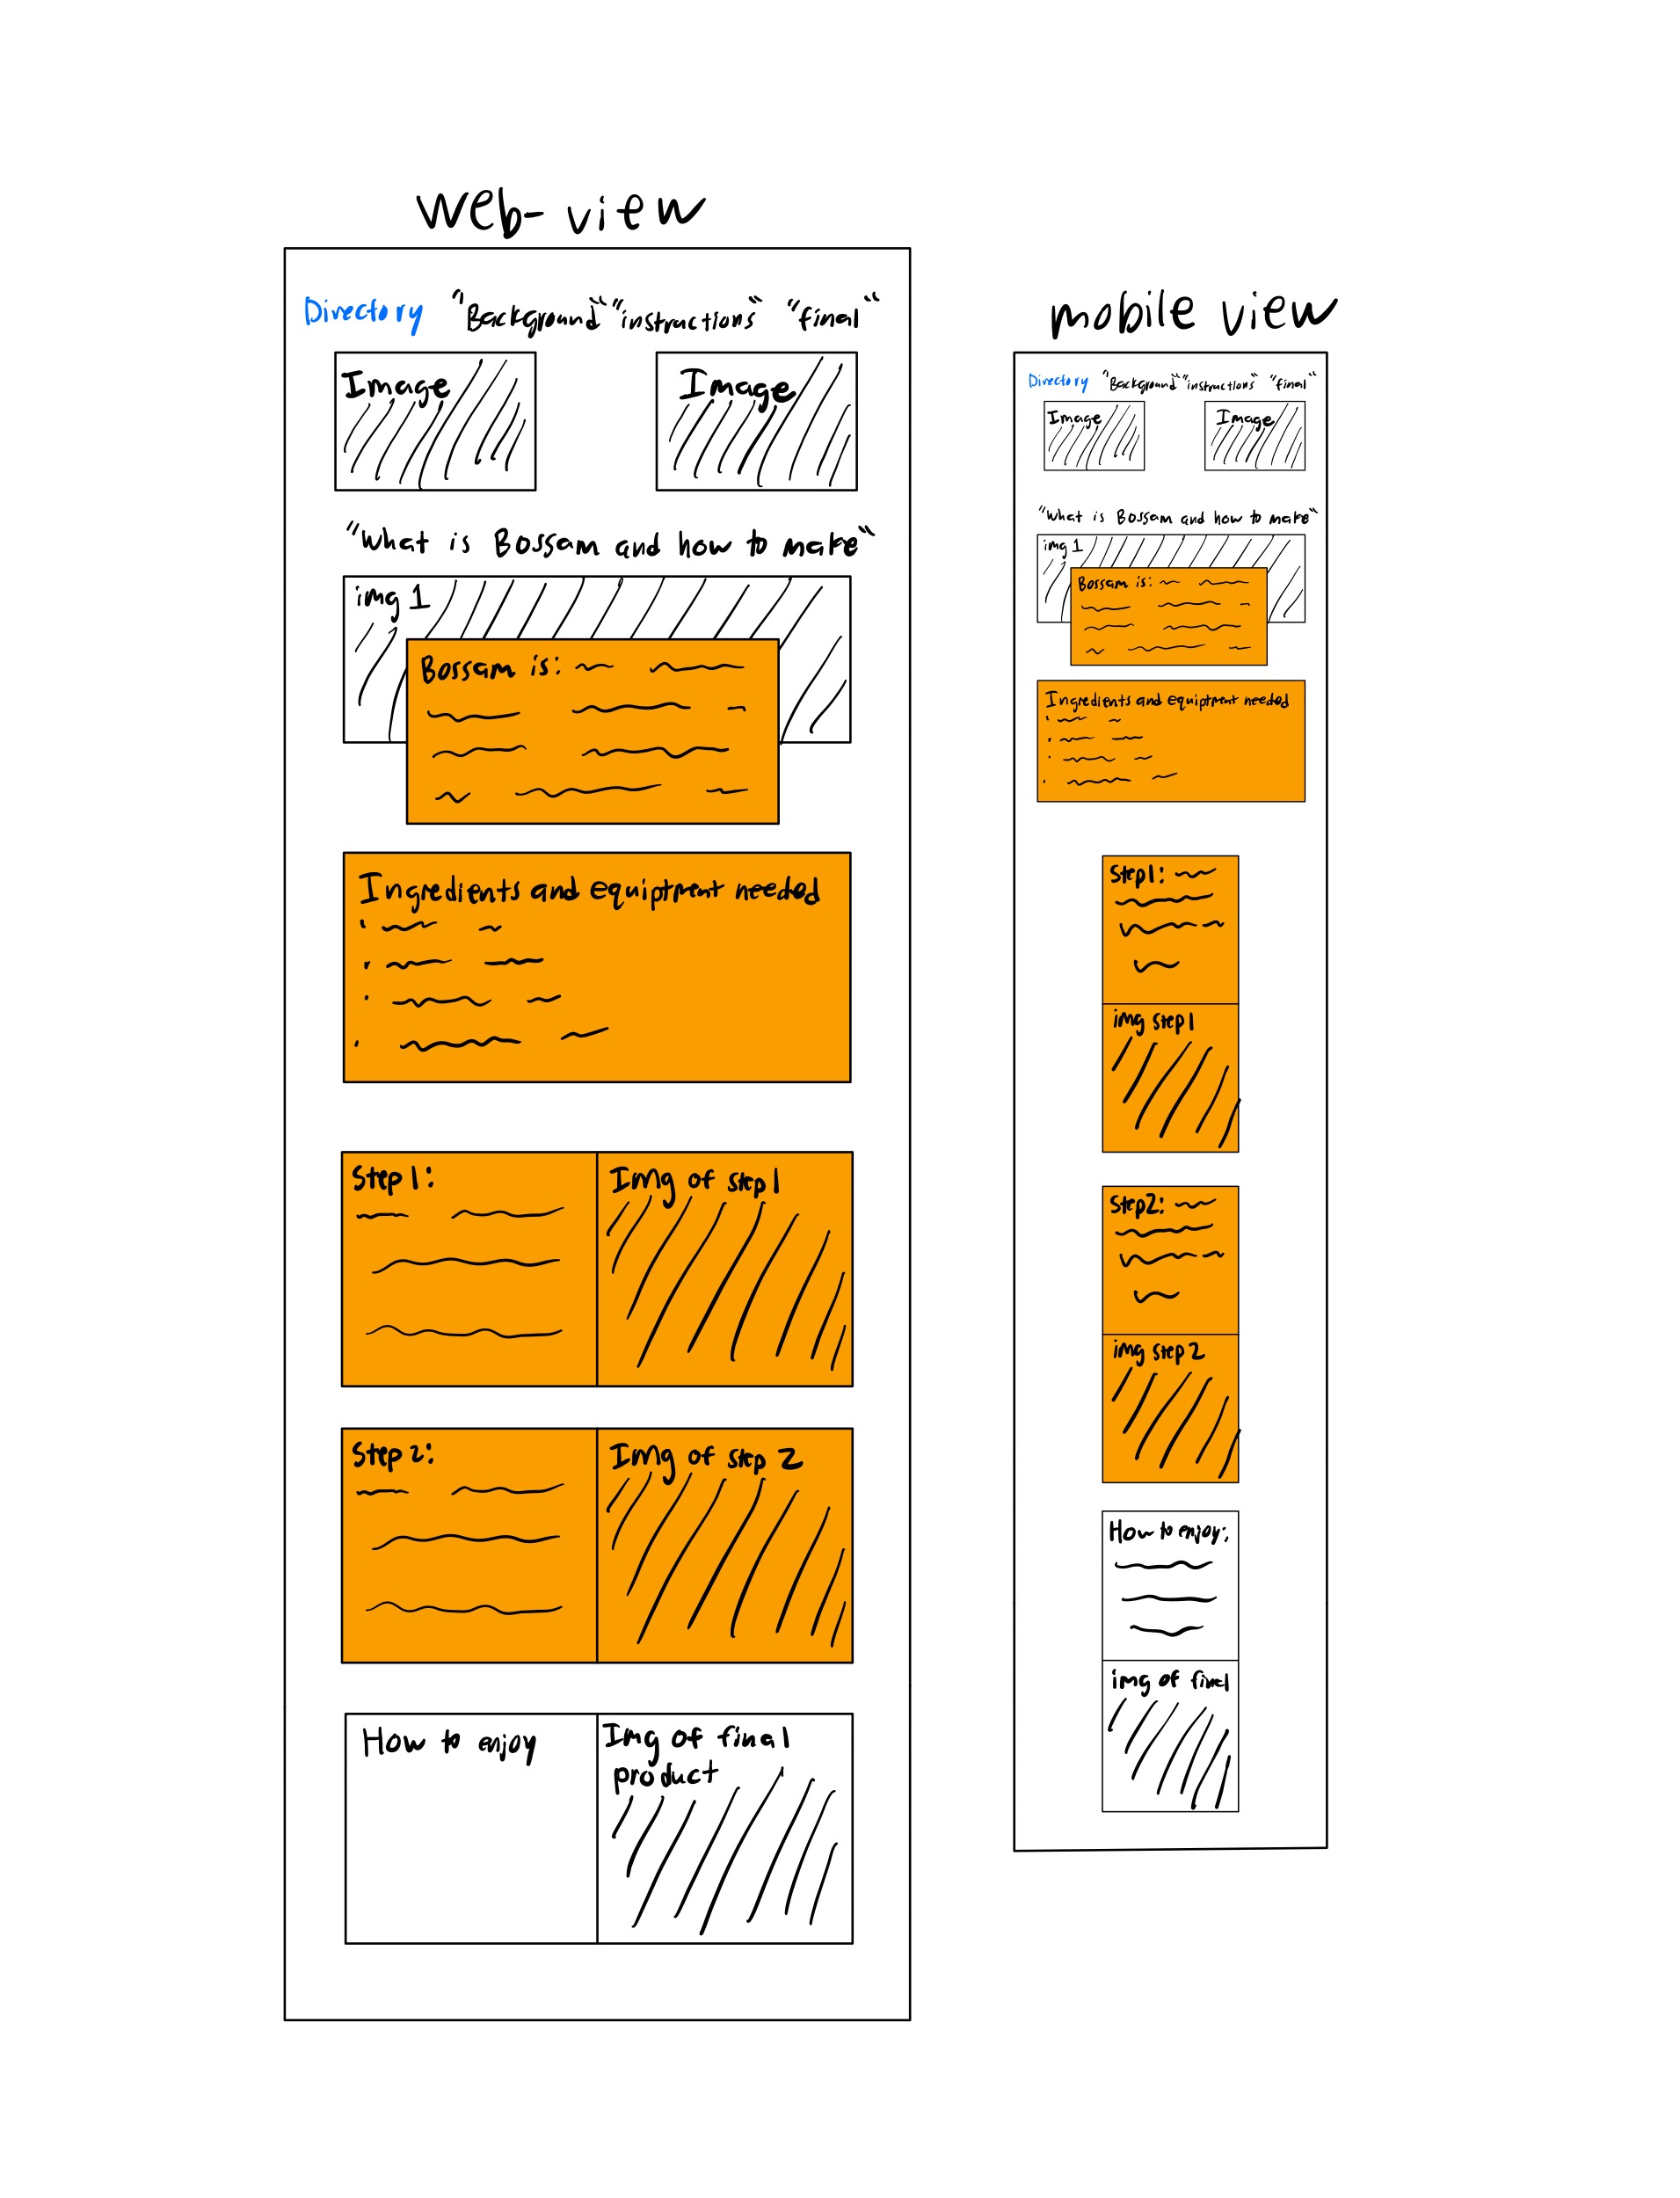 web-view
Directory "Background" "instructions" "final"
Image
Image
"What is Bossam and how to make"
img 1
Bossam is:
Ingredients and equiptment needed
Step 1:
Img of step 1
Step 2:
Img of step 2
How to enjoy
Img of final
product
mobile view
Directory "Background" "instructions" "final"
Image
Image
"What is Bossam and how to make"
img 1
Bossam is:
Ingredients and equiptment needed
Step 1:
img step 1
Step 2:
img step 2
How to enjoy:
img of final